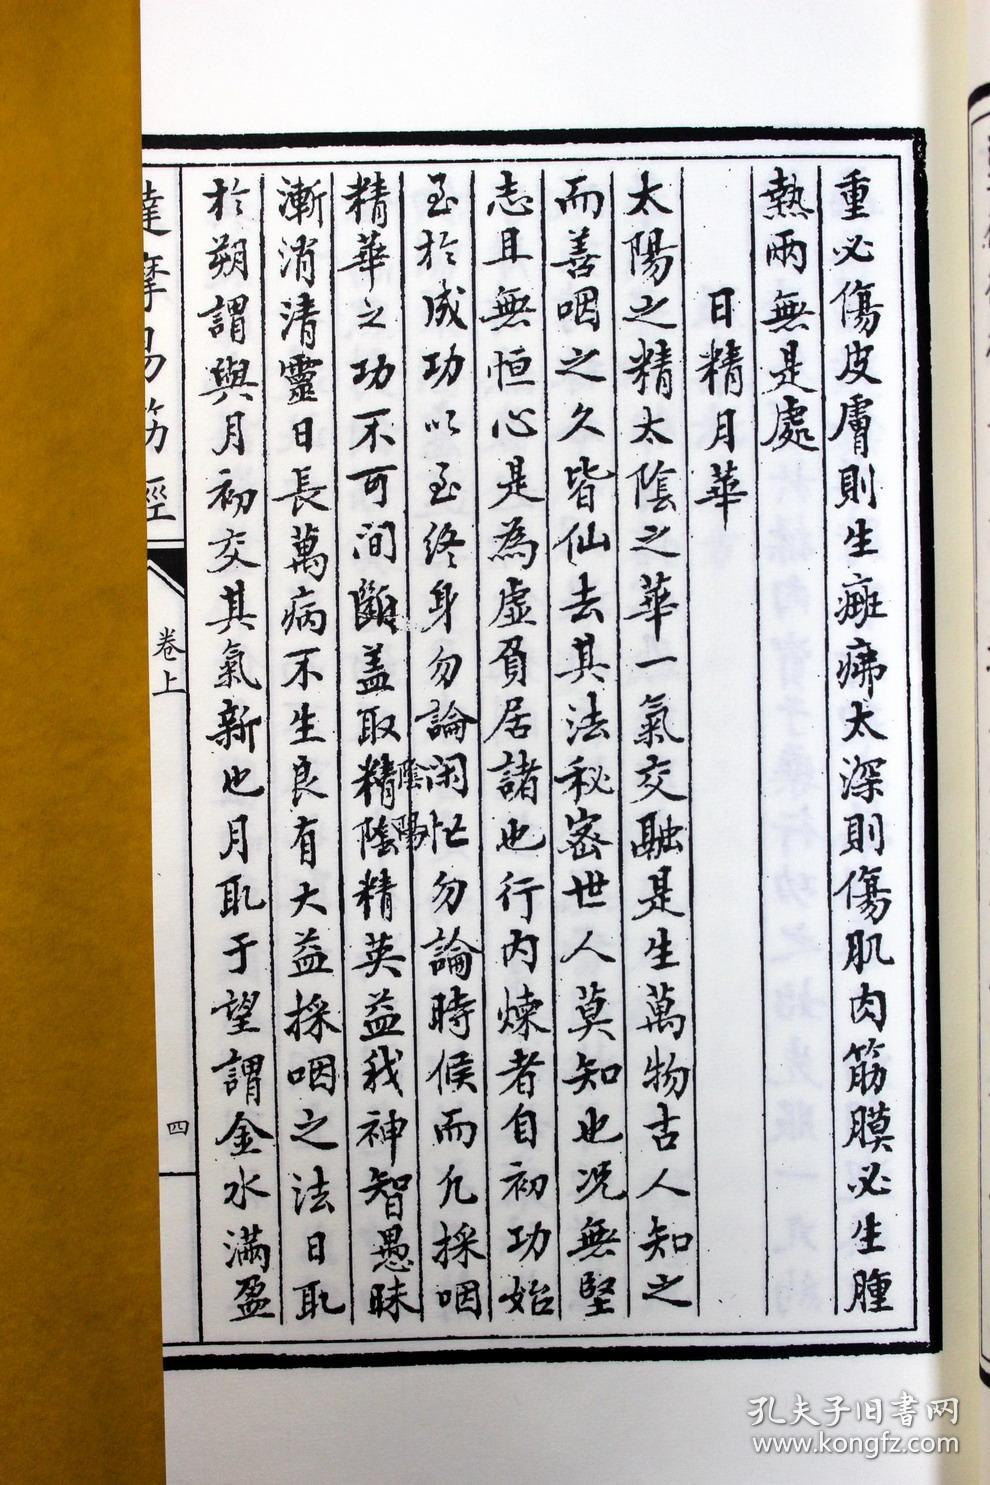 重必傷皮膚則生癍疿太深則傷肌肉筋膜必生腫
熱兩無是處
日精月華
太陽之精太陰之華一氣交融是生萬物古人知之
而善咽之久皆仙去其法秘密世人莫知也况無堅
志且無恒心是為虚負居諸也行内煉者自初功始
至於成功以至终身勿論闲忙勿論時候而凢採咽
精華之功不可间斷盖取精陰精英益我神智愚昧
陰陽
漸消清靈日長萬病不生良有大益採咽之法日取
於朔謂與月初交其氣新也月取于望謂金水滿盈
達摩易筋經
卷上
四
孔夫子旧書网
www.kongfz.com